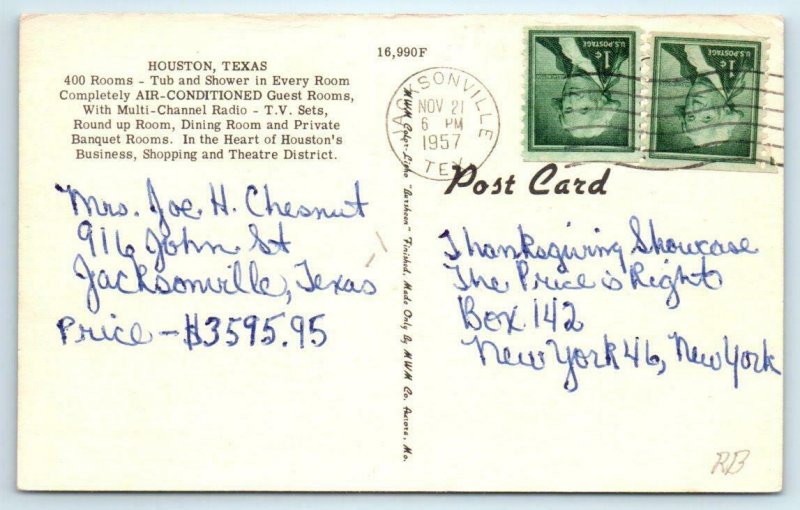 16,990F
HOUSTON, TEXAS
400 Rooms - Tub and Shower in Every Room
Completely AIR-CONDITIONED Guest Rooms,
With Multi-Channel Radio - T.V. Sets,
Round up Room, Dining Room and Private
Banquet Rooms. In the Heart of Houston's
Business, Shopping and Theatre District.
Mrs. Joe H. Chesnut
916 John St
Jacksonville, Texas
Price - $3595.95
MWM Color-Litho "Earsheen" Finished. Made Only By MWM Co. Aurora, Mo.
SONVILLE
NOV 21
6 PM
1957
TEX
U.S. POSTAGE
1¢
U.S. POSTAGE
1¢
Post Card
Thanksgiving Showcase
The Price is Right
Box 142
New York 46, New York
RB